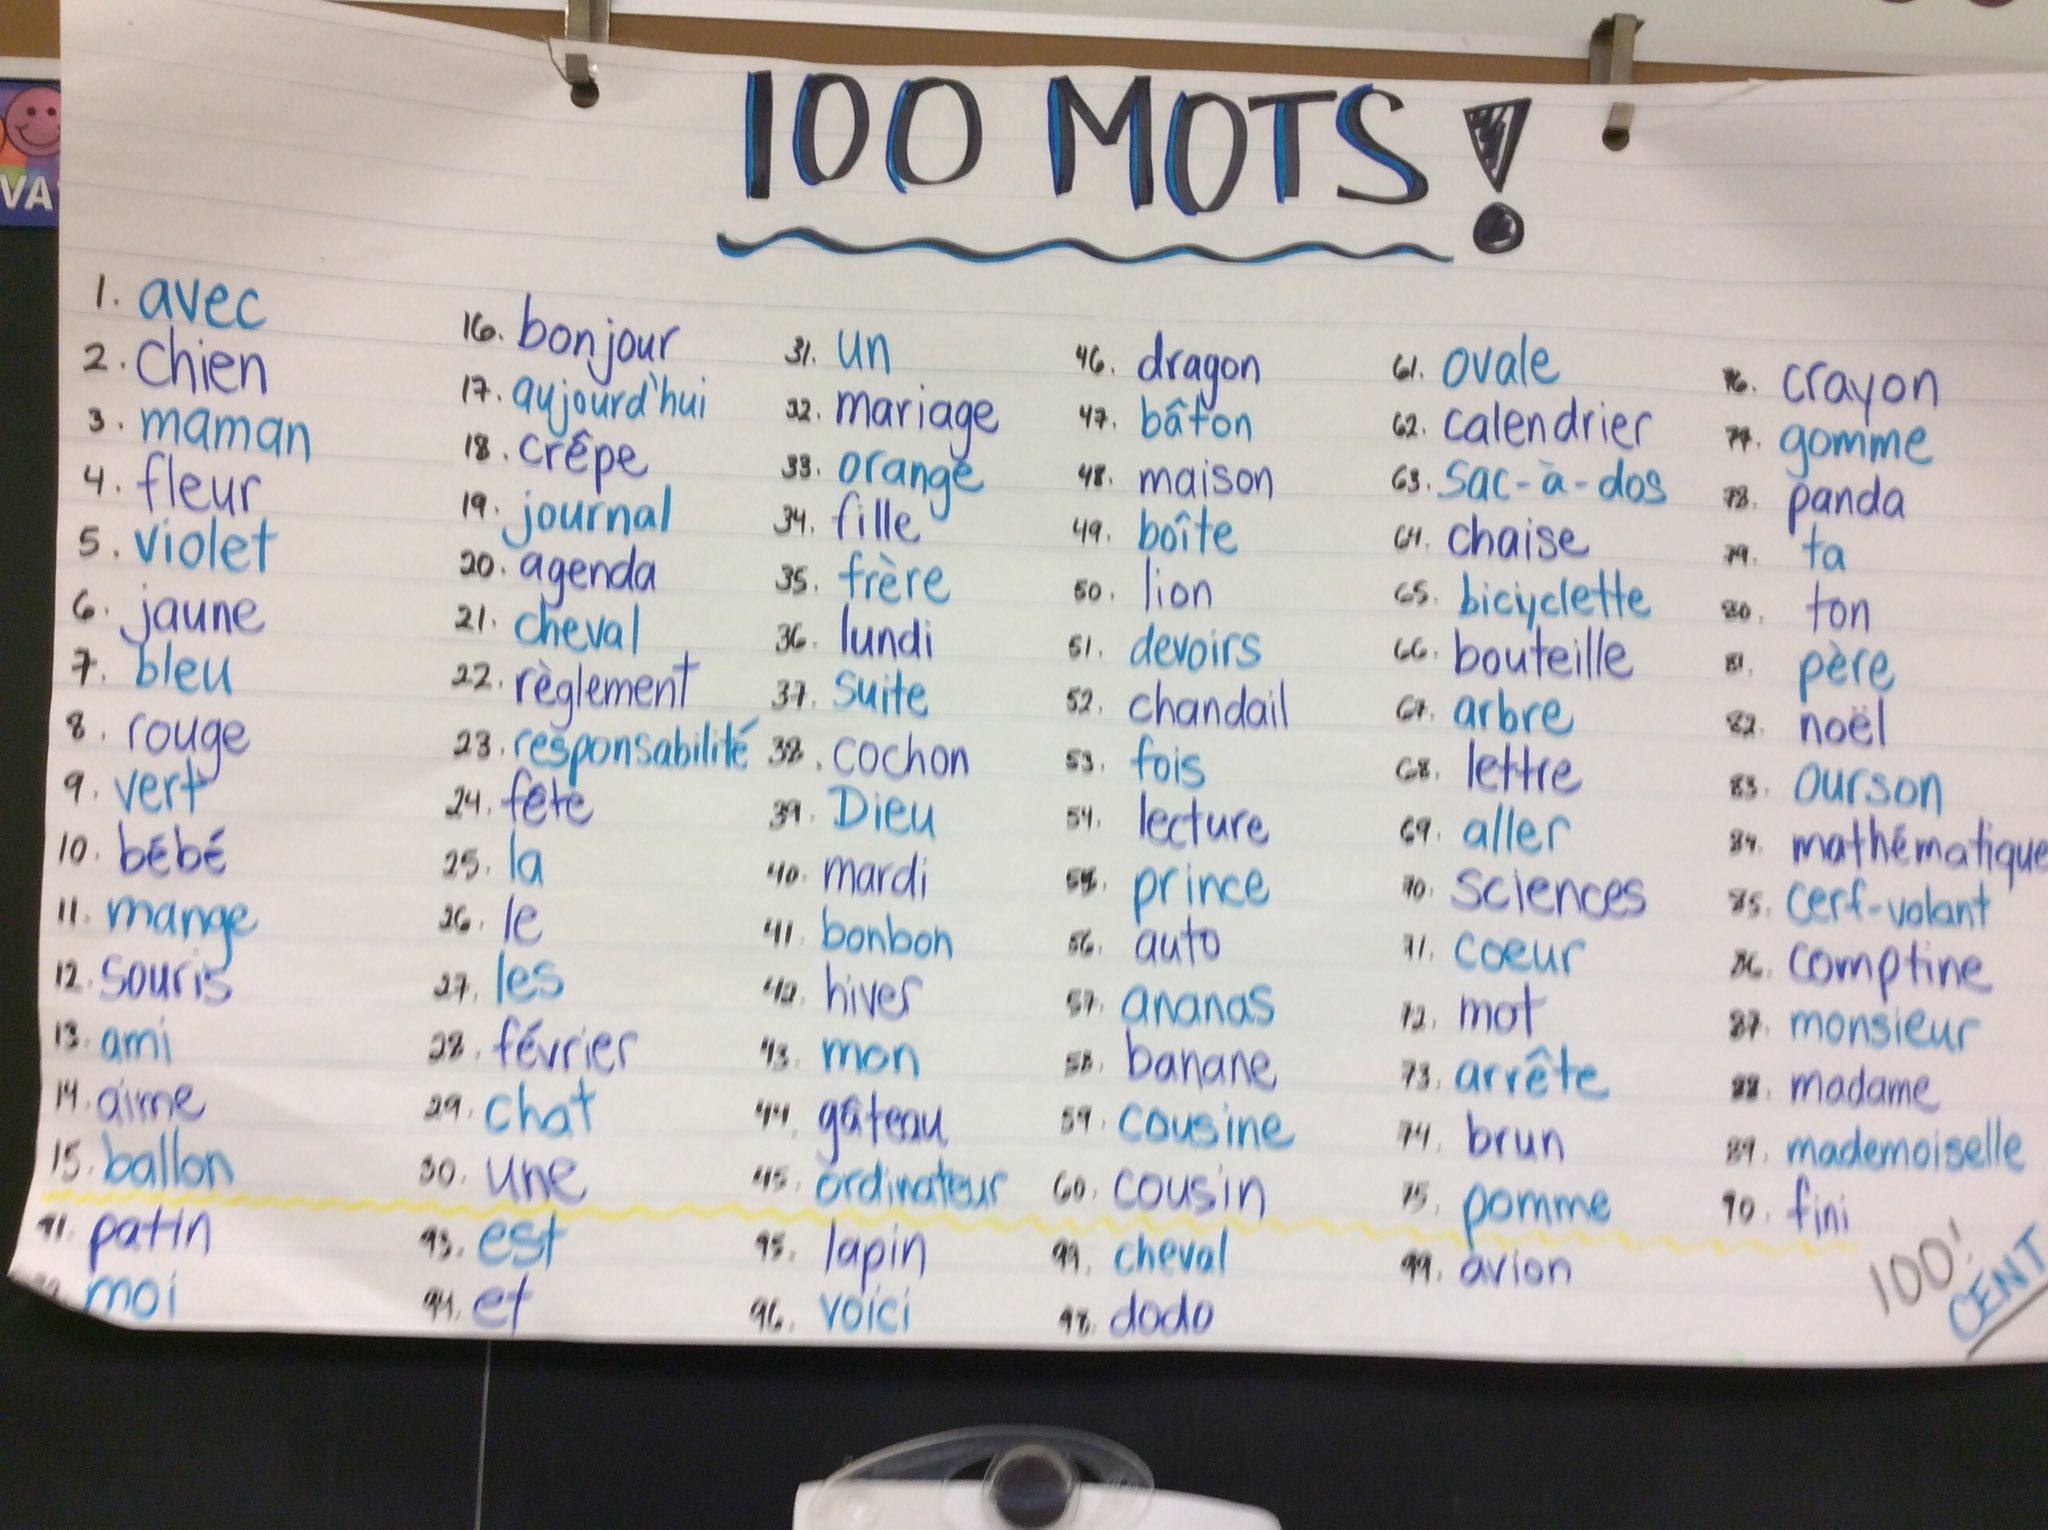 VA
100 MOTS!
1. avec
2. chien
3. maman
4. fleur
5. violet
6. jaune
7. bleu
8. rouge
9. vert
10. bébé
11. mange
12. souris
13. ami
14. aime
15. ballon
16. bonjour
17. aujourd'hui
18. crêpe
19. journal
20. agenda
21. cheval
22. règlement
23. responsabilité
24. fête
25. la
26. le
27. les
28. février
29. chat
30. une
31. un
32. mariage
33. orange
34. fille
35. frère
36. lundi
37. suite
38. cochon
39. Dieu
40. mardi
41. bonbon
42. hiver
43. mon
44. gâteau
45. ordinateur
46. dragon
47. bâton
48. maison
49. boîte
50. lion
51. devoirs
52. chandail
53. fois
54. lecture
55. prince
56. auto
57. ananas
58. banane
59. cousine
60. cousin
61. ovale
62. calendrier
63. sac-à-dos
64. chaise
65. bicyclette
66. bouteille
67. arbre
68. lettre
69. aller
70. sciences
71. coeur
72. mot
73. arrête
74. brun
75. pomme
76. crayon
77. gomme
78. panda
79. ta
80. ton
81. père
82. noël
83. ourson
84. mathématique
85. cerf-volant
86. comptine
87. monsieur
88. madame
89. mademoiselle
90. fini
91. patin
moi
93. est
94. et
95. lapin
96. voici
99. cheval
98. dodo
99. avion
100!
CENT